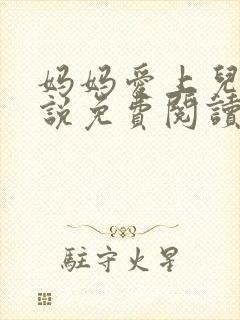 妈妈愛上兒
說免費閱讀
駐守火星